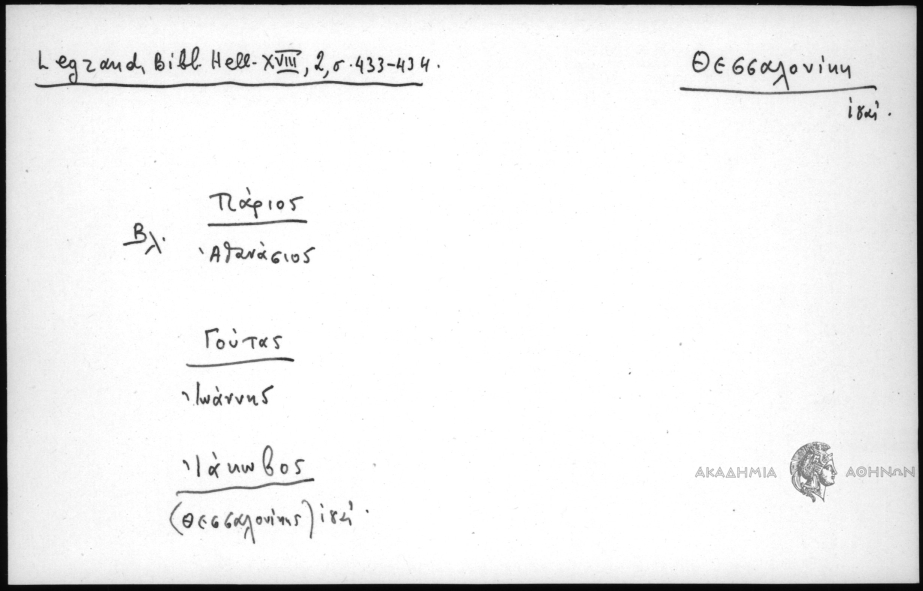 Legrand, Bibl Hell. XVIII, 2, σ. 433-434.
Θεσσαλονίκη
ιη΄ αἰ.
Βλ. Πάριος
Ἀθανάσιος
Γούτας
Ἰωάννης
Ἰάκωβος
(Θεσσαλονίκης)
ΑΚΑΔΗΜΙΑ ΑΘΗΝΩΝ